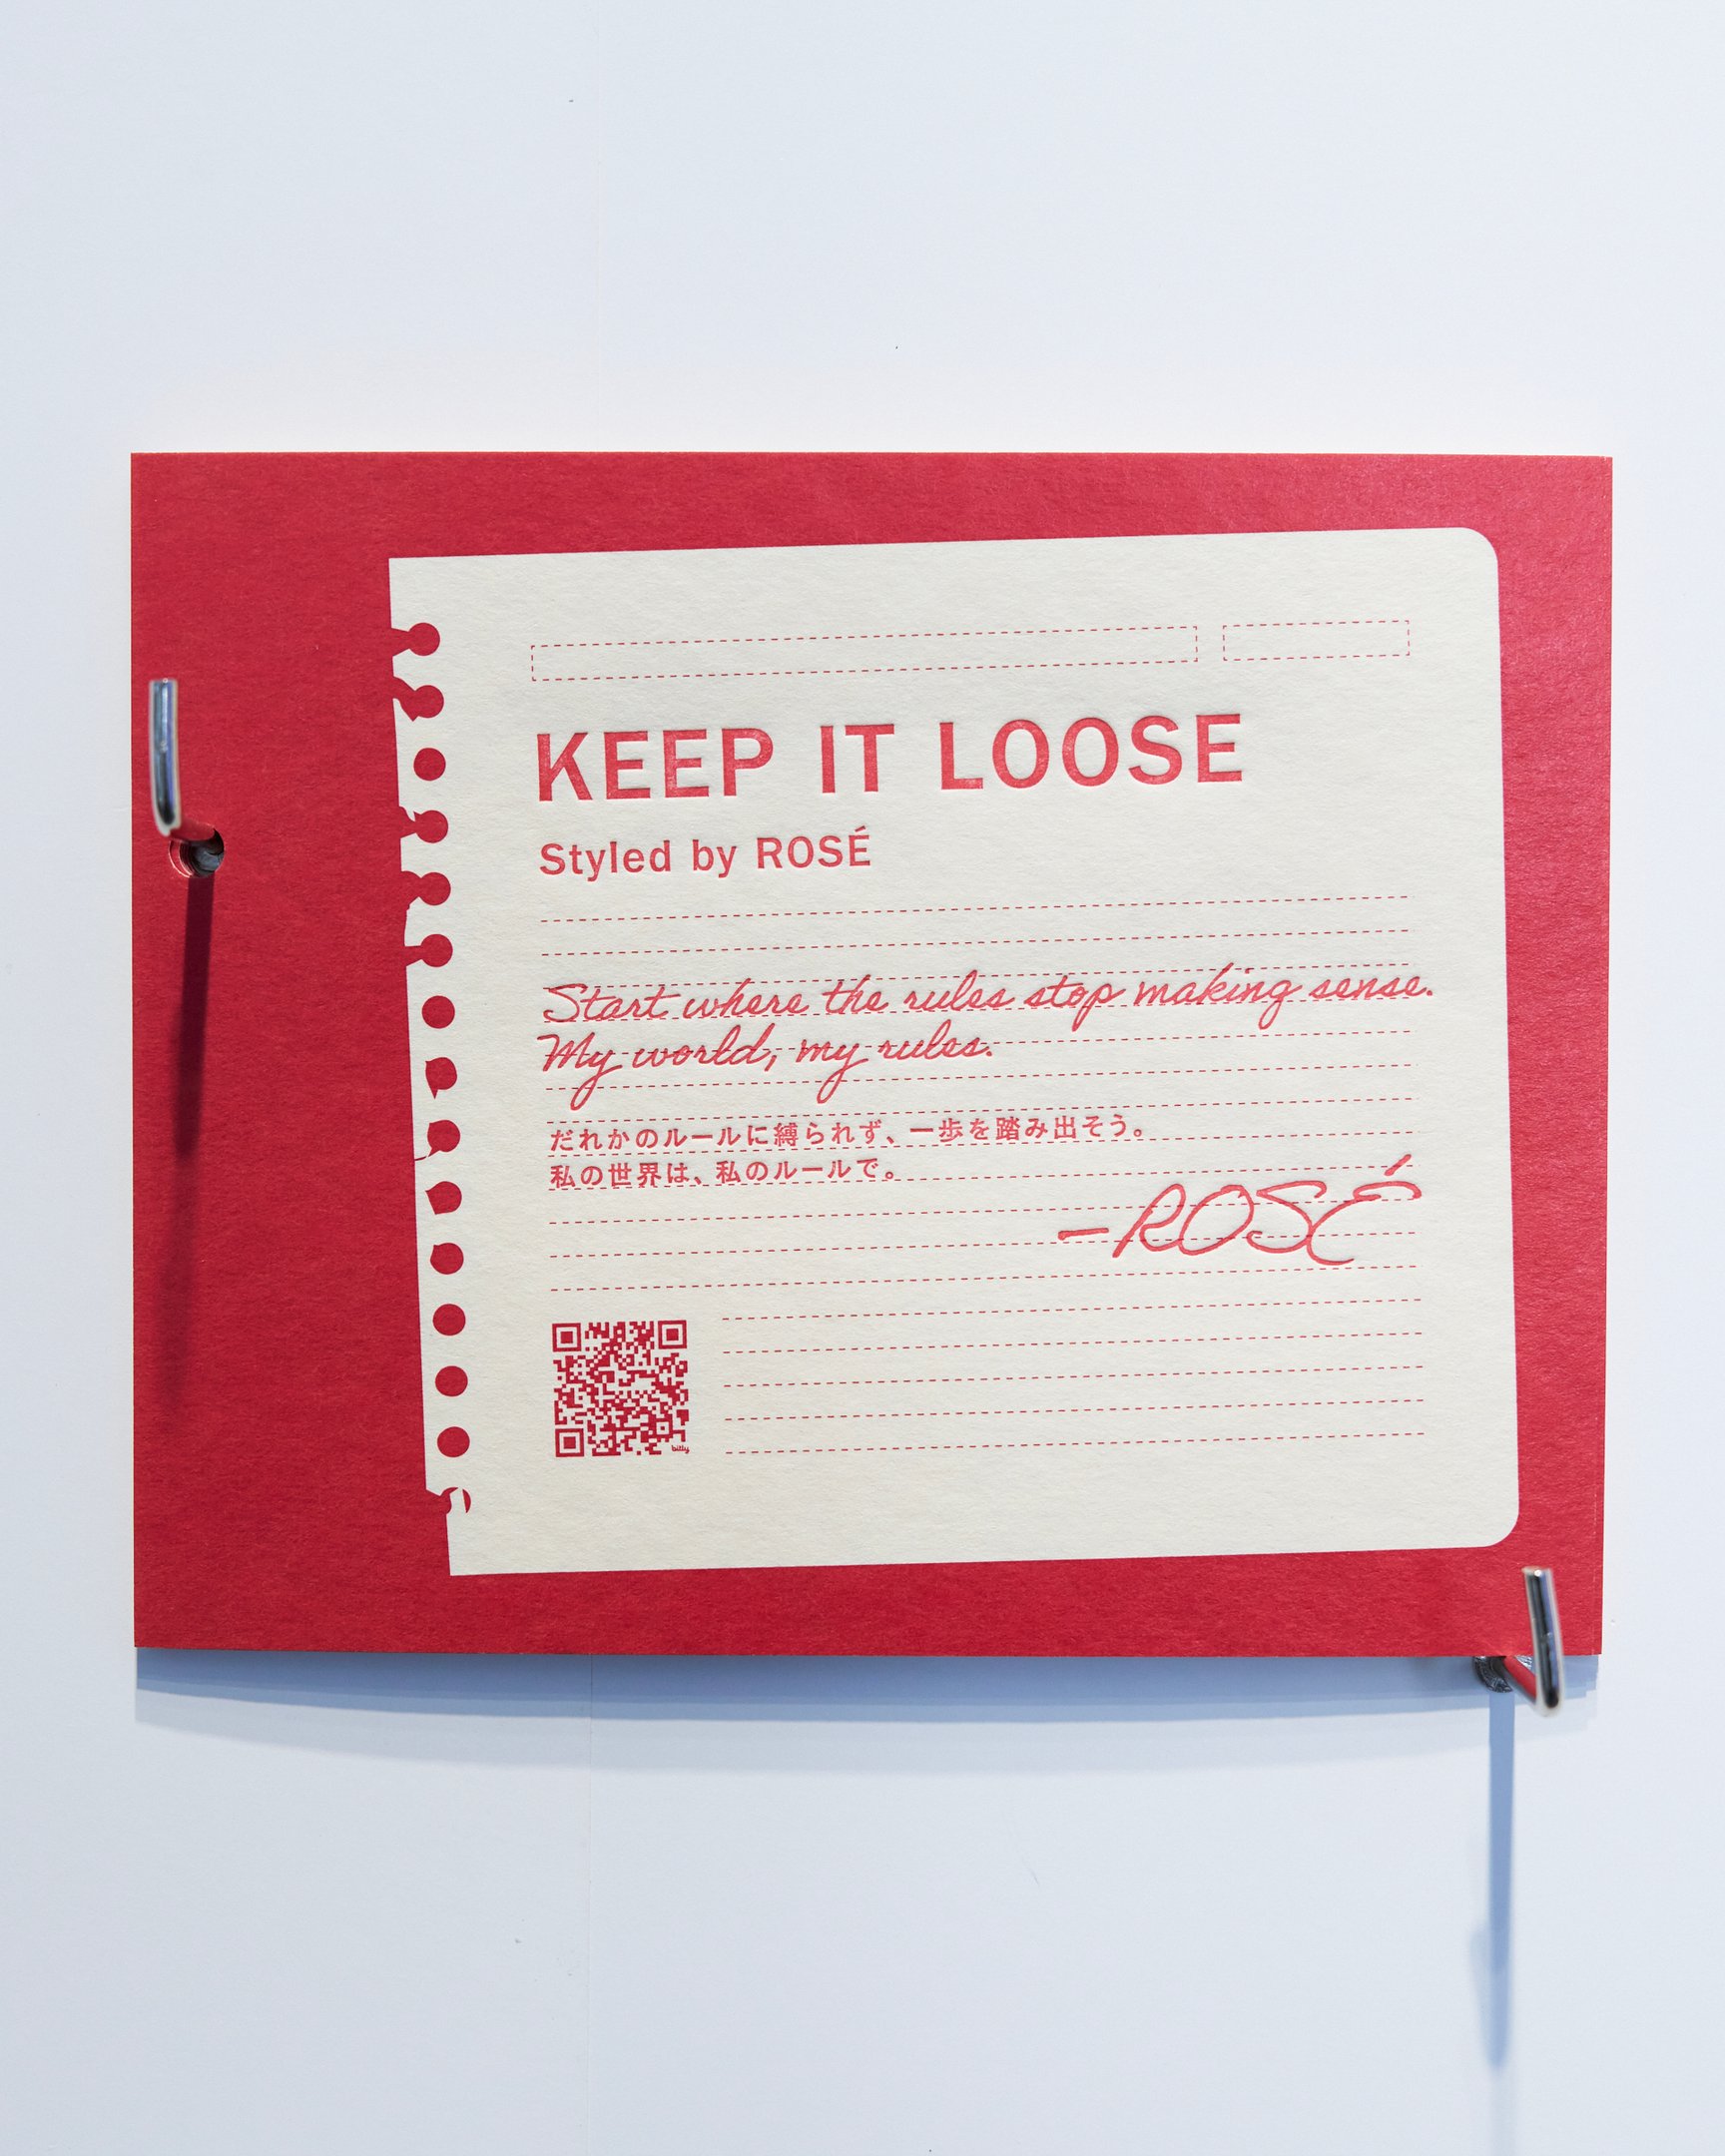 KEEP IT LOOSE
Styled by ROSÉ
Start where the rules stop making sense.
My world, my rules.
だれかのルールに縛られず、一歩を踏み出そう。
私の世界は、私のルールで。
—ROSÉ
bitly